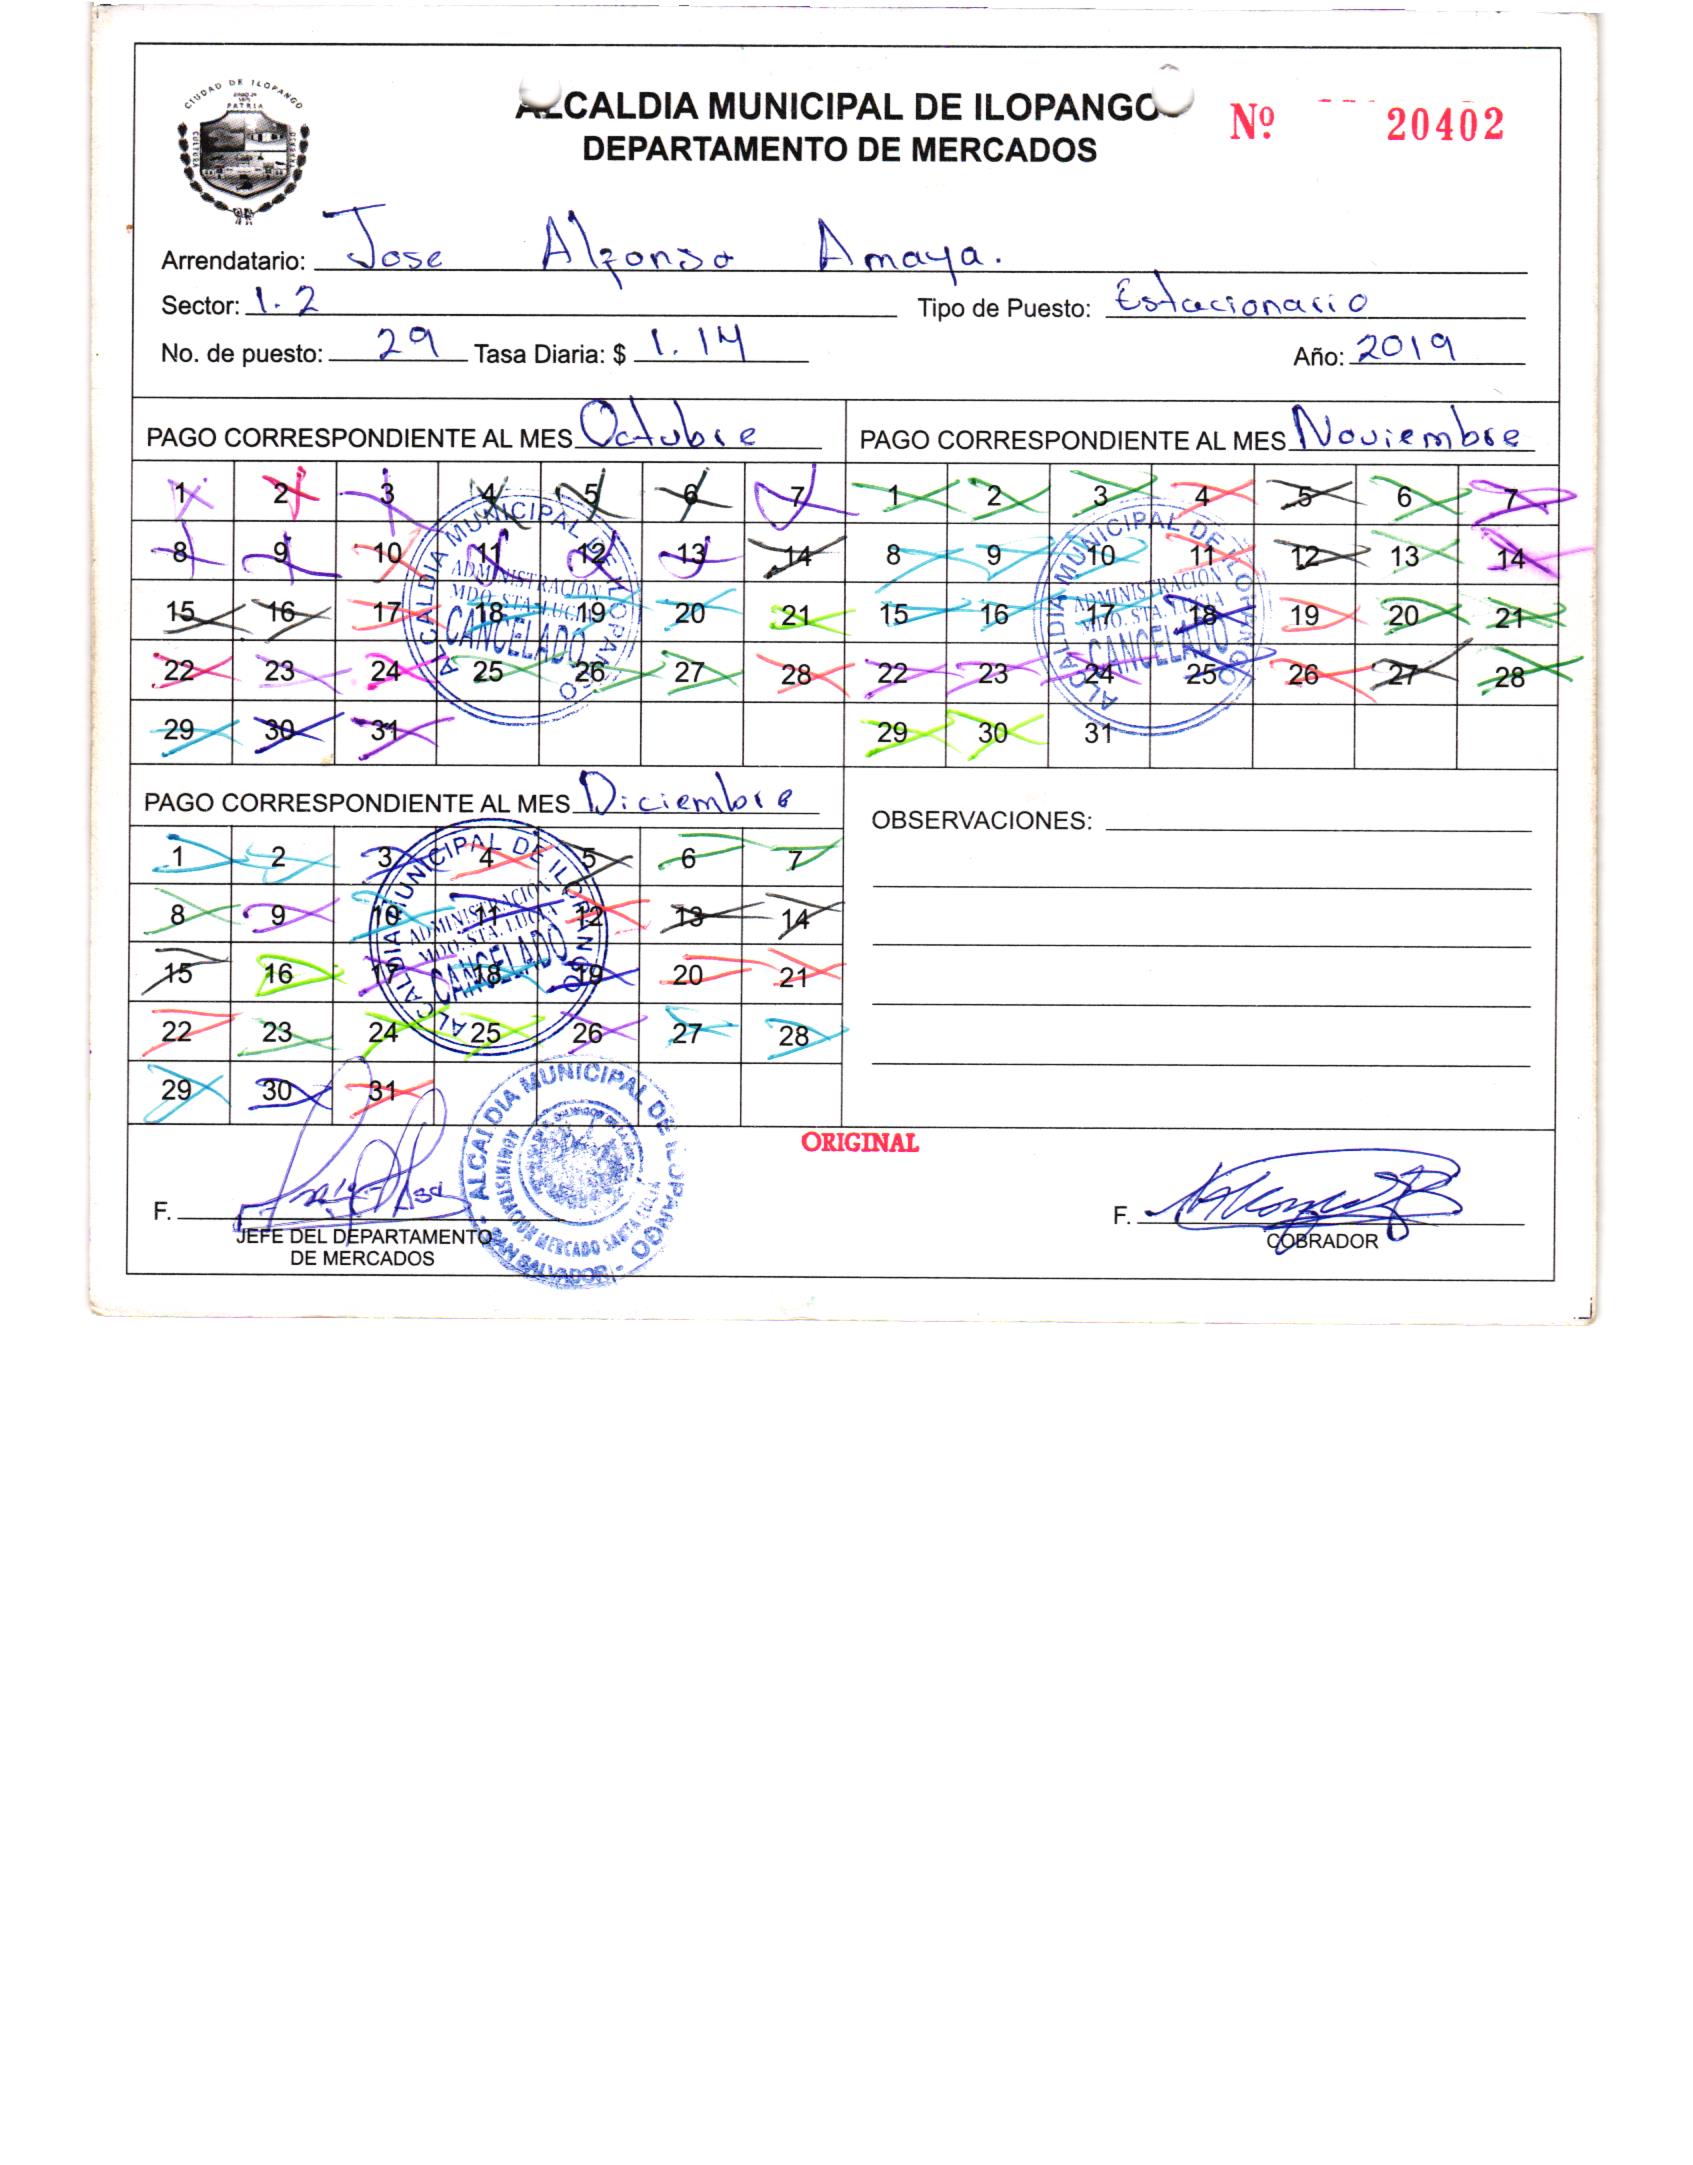 CIUDAD DE ILOPANGO
PATRIA
ALCALDIA MUNICIPAL DE ILOPANGO
DEPARTAMENTO DE MERCADOS
Nº 20402
Arrendatario: Jose Alfonso Amaya.
Sector: 1.2 Tipo de Puesto: Estacionario
No. de puesto: 29 Tasa Diaria: $ 1.14 Año: 2019
PAGO CORRESPONDIENTE AL MES Octubre
1 2 3 4 5 6 7
8 9 10 11 12 13 14
15 16 17 18 19 20 21
22 23 24 25 26 27 28
29 30 31
ALCALDIA MUNICIPAL DE ILOPANGO
ADMINISTRACION
MDO. STA. LUCIA
CANCELADO
PAGO CORRESPONDIENTE AL MES Noviembre
1 2 3 4 5 6 7
8 9 10 11 12 13 14
15 16 17 18 19 20 21
22 23 24 25 26 27 28
29 30 31
ALCALDIA MUNICIPAL DE ILOPANGO
ADMINISTRACION
MDO. STA. LUCIA
CANCELADO
PAGO CORRESPONDIENTE AL MES Diciembre
1 2 3 4 5 6 7
8 9 10 11 12 13 14
15 16 17 18 19 20 21
22 23 24 25 26 27 28
29 30 31
ALCALDIA MUNICIPAL DE ILOPANGO
ADMINISTRACION
MDO. STA. LUCIA
CANCELADO
OBSERVACIONES:
ORIGINAL
F.
JEFE DEL DEPARTAMENTO
DE MERCADOS
ALCALDIA MUNICIPAL DE ILOPANGO
ADMINISTRACION MERCADO SANTA LUCIA
- SAN SALVADOR -
F.
COBRADOR